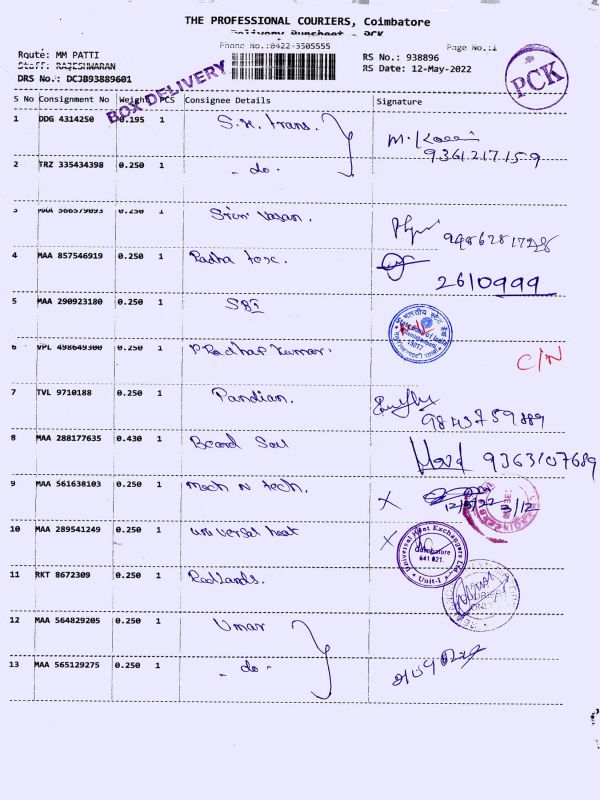 THE PROFESSIONAL COURIERS, Coimbatore
Delivery Runsheet - PCK
Phone No.:0422-3505555
Page No.:1
Route: MM PATTI
RS No.: 938896
Staff: RAJESHWARAN
RS Date: 12-May-2022
DRS No.: DCJB93889601
PCK
BOX DELIVERY
S No Consignment No Weight PCS Consignee Details Signature
1 DDG 4314250 0.195 1 S.K. trans. 9361217159
2 TRZ 335434398 0.250 1 - do -
3 MAA 566579093 0.250 1 Srini vasan.
4 MAA 857546919 0.250 1 Radha texc. 2610999
5 MAA 290923180 0.250 1 SBI
6 VPL 498649300 0.250 1 P. Radha Kumar. C/N
7 TVL 9710188 0.250 1 Pandian.
8 MAA 288177635 0.430 1 9363107689
9 MAA 561638103 0.250 1 Mech N tech. X
10 MAA 289541249 0.250 1 universal heat X
Universal Heat Exchangers Ltd
Coimbatore
641 021.
Unit-I
11 RKT 8672309 0.250 1 Radlands.
12 MAA 564829205 0.250 1 Umar
13 MAA 565129275 0.250 1 - do -